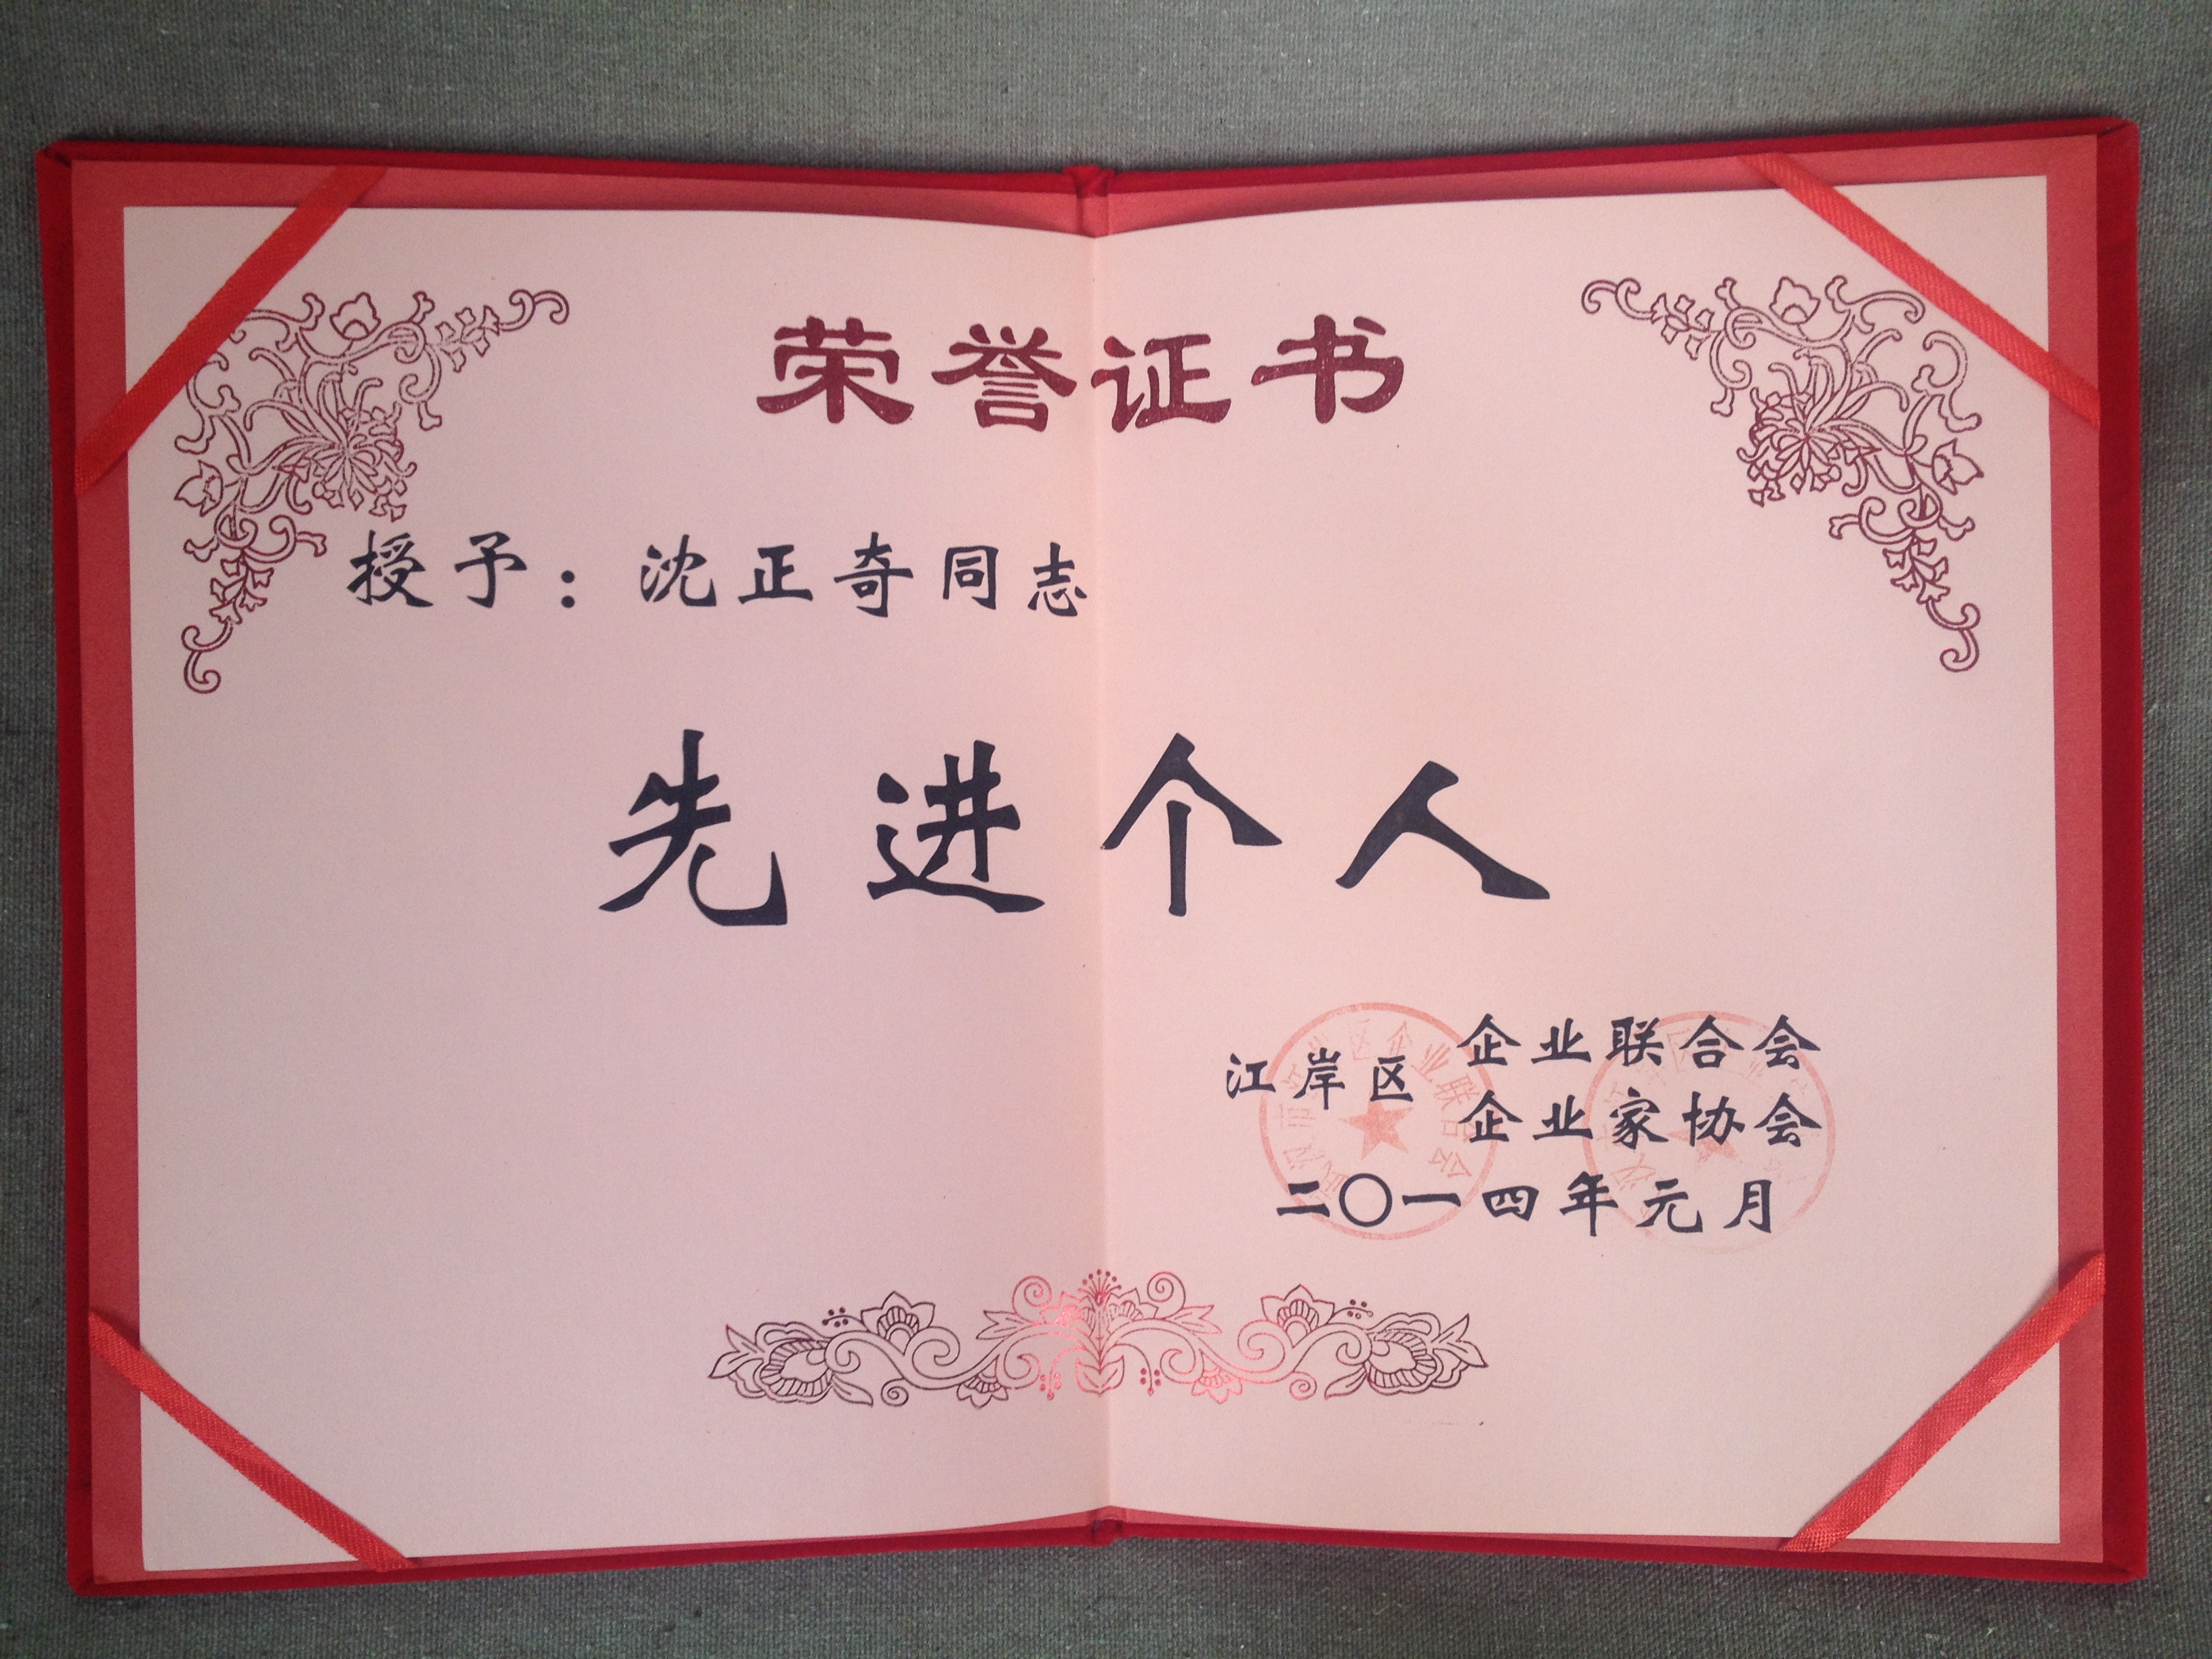 荣誉证书
授予：沈正奇同志
先进个人
江岸区 企业联合会
企业家协会
二〇一四年元月